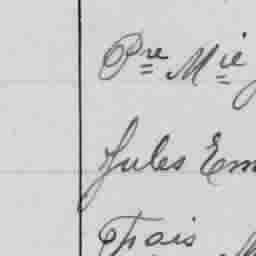 Pre Mie
Jules Em
Thais